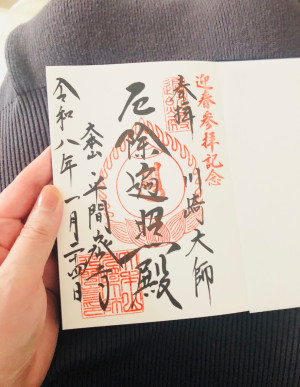 迎春参拝記念
奉拝 川崎大師
厄除遍照殿
大本山 平間寺
令和八年一月二四日